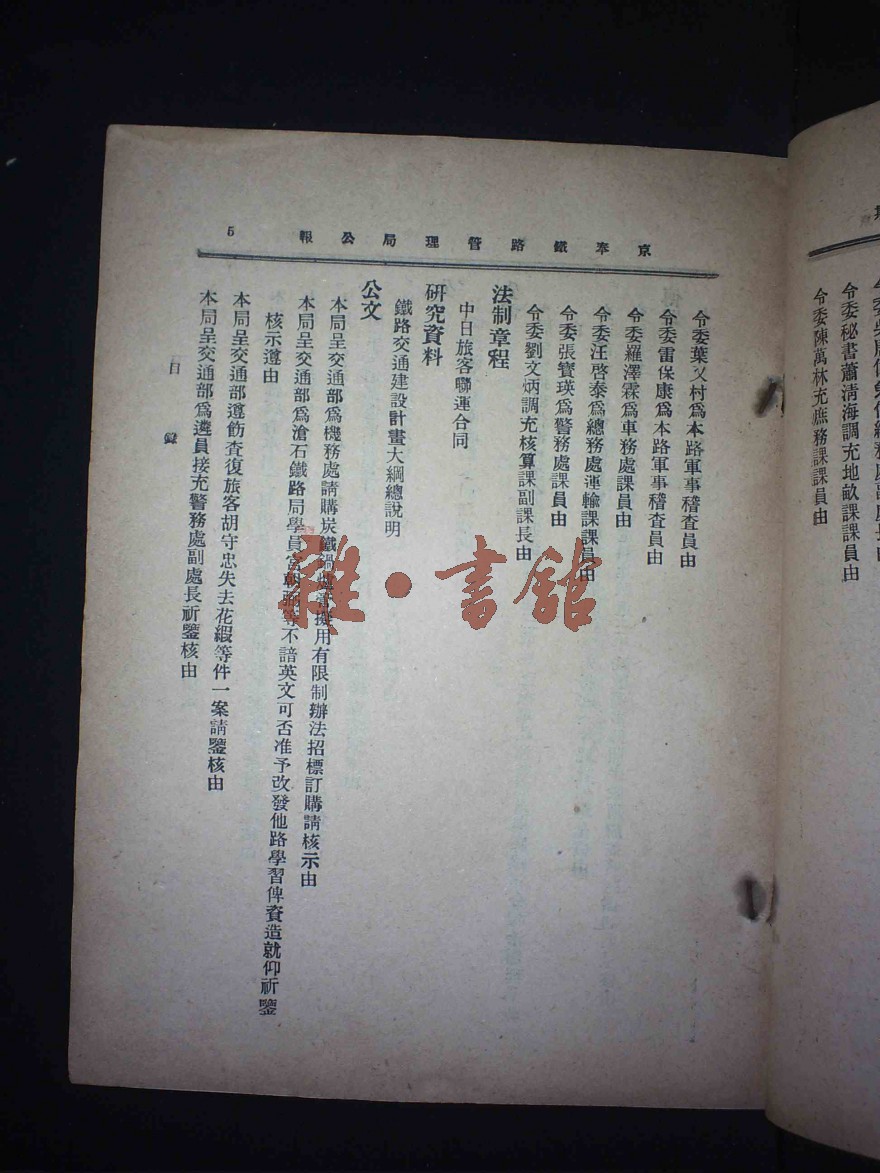 京奉鐵路管理局公報
5
令委葉乂村爲本路軍事稽查員由
令委雷保康爲本路軍事稽查員由
令委羅澤霖爲車務處課員由
令委汪啓泰爲總務處運輸課課員由
令委張寶瑛爲警務處課員由
令委劉文炳調充核算課副課長由
法制章程
中日旅客聯運合同
研究資料
鐵路交通建設計畫大綱總說明
公文
本局呈交通部爲機務處請購炭鐵鍋爐管擬用有限制辦法招標訂購請核示由
本局呈交通部爲滄石鐵路局學員宮等不諳英文可否准予改發他路學習俾資造就仰祈鑒
核示遵由
本局呈交通部遵飭查復旅客胡守忠失去花緞等件一案請鑒核由
本局呈交通部爲遴員接充警務處副處長祈鑒核由
目錄
令委秘書蕭清海調充地畝課課員由
令委陳萬林充庶務課課員由
雅·書舘